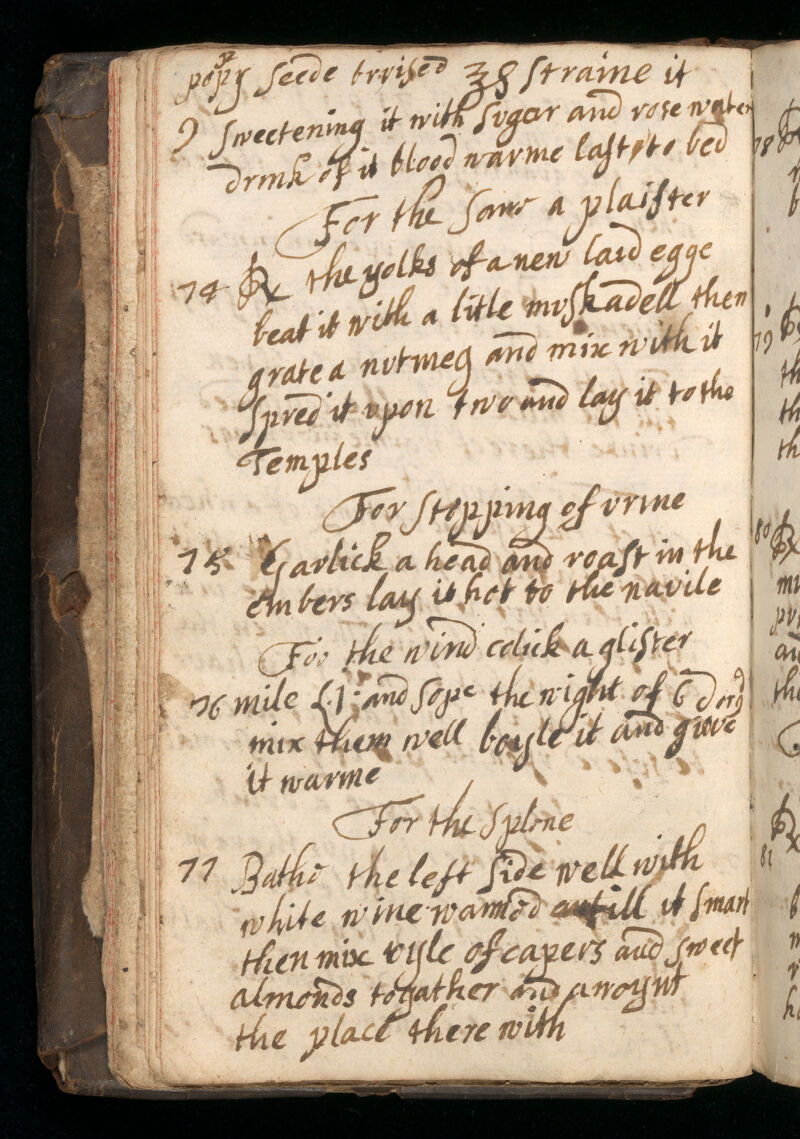 popy seede brvised ʒ8 straine it
sweetening it with sugar and rose water
drink of it blood warme last to bed
For the same a plaister
74 ℞ the yolks of a new laid egge
beat it with a litle mvskadell then
grate a nvtmeg and mix with it
spred it vpon two and lay it to the
Temples
For stopping of vrine
75 Garlick a head and roast in the
embers lay it hot to the navile
For the wind colick a glister
76 mile £1 and sope the wight of 6d or 9d
mix them well boyle it and gieve
it warme
For the splene
77 Bathe the left side well with
white wine warmed till it smart
then mix oyle of capers and sweet
almonds togather and anoynt
the place there with
78 ℞
79
th
th
th
80 ℞
mi
au
the
℞
81